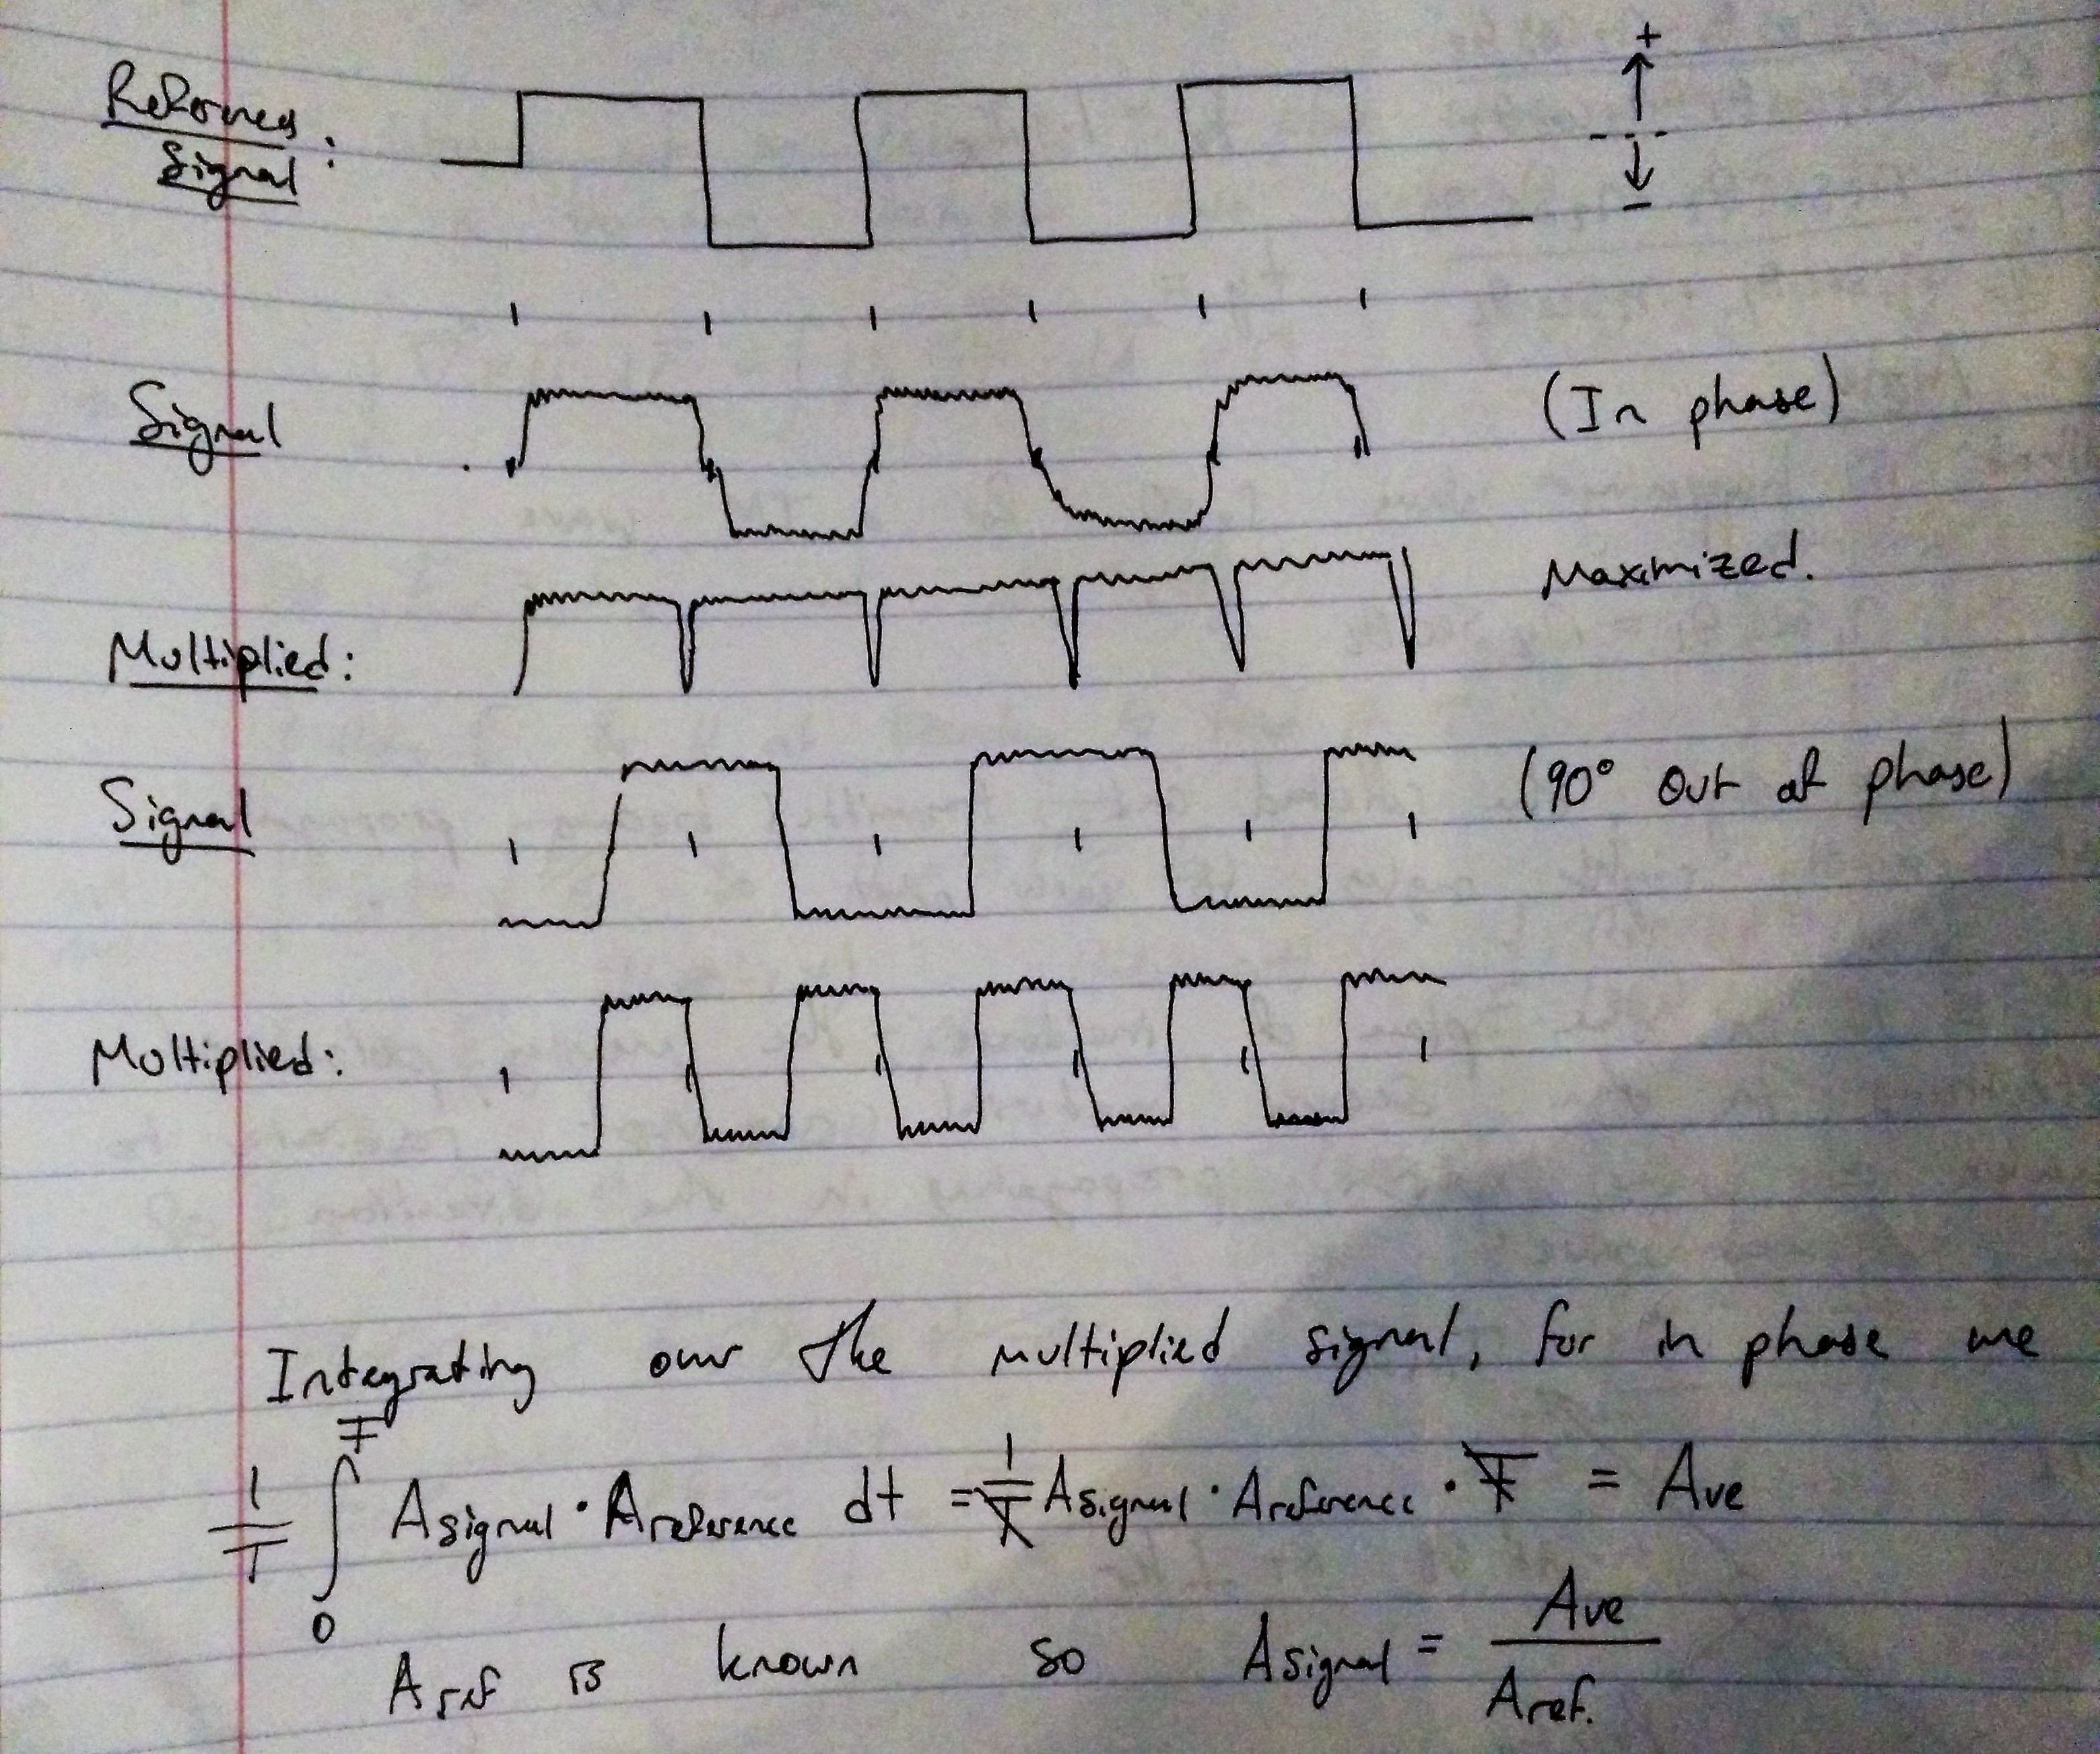 Reference
Signal :
+
-
Signal
(In phase)
Maximized.
Multiplied:
Signal
(90° Out of phase)
Multiplied:
Integrating over the multiplied signal, for in phase we
1/T ∫₀ᵀ Asignal · Areference dt = 1/T Asignal · Areference · T = Ave
Aref is known so Asignal = Ave / Aref.